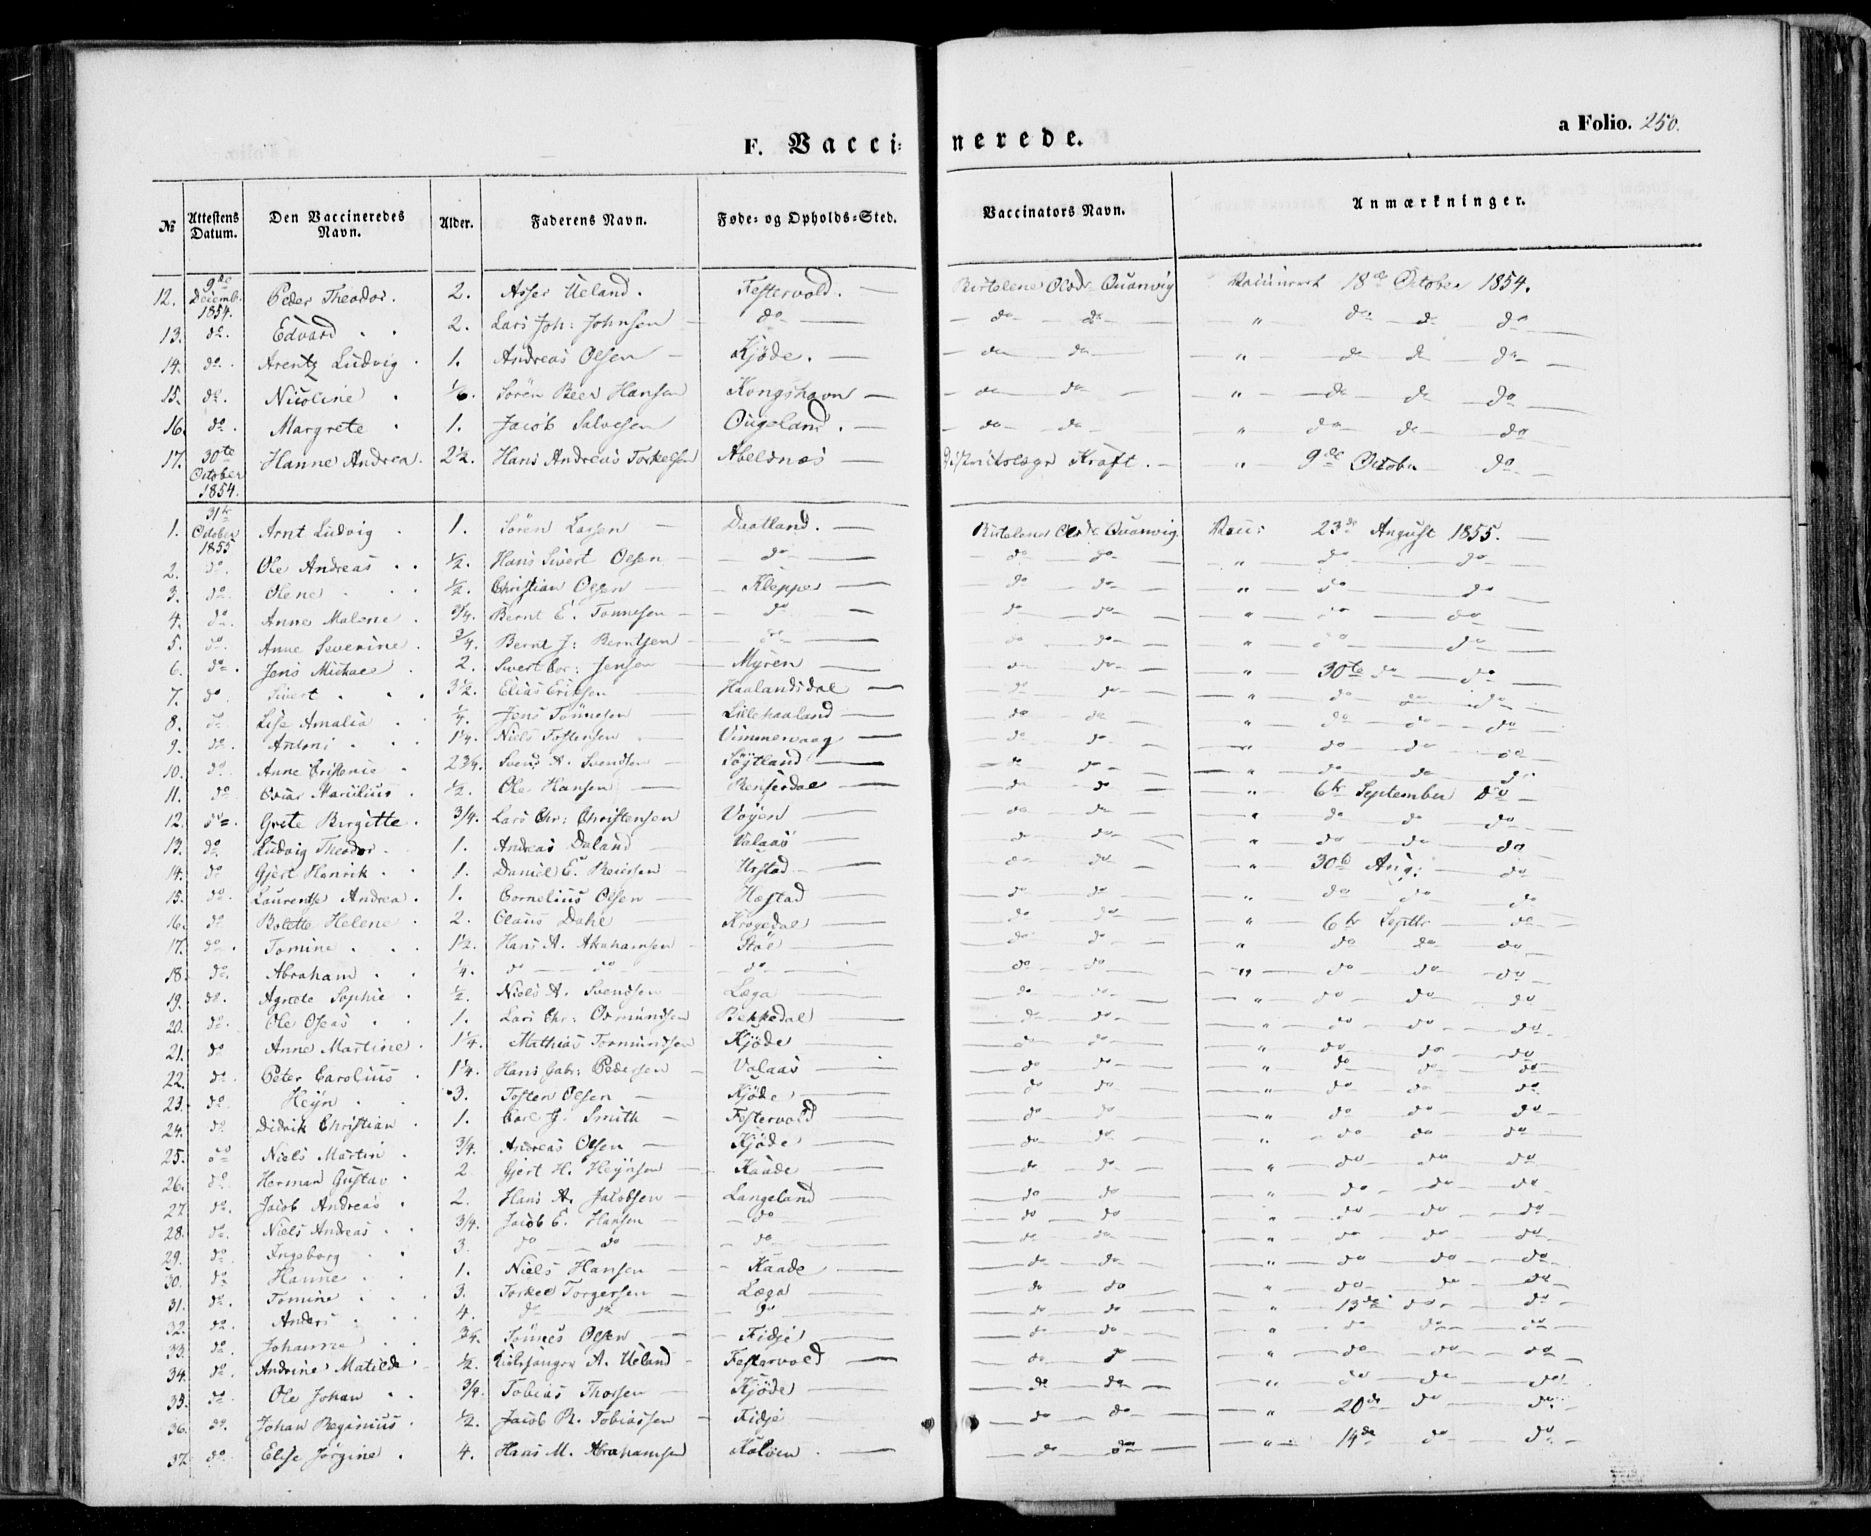 F. Vaccinerede.
a Folio. 250.
№ Attestens Datum. Den Vaccineredes Navn. Alder. Faderens Navn. Føde- og Opholds-Sted. Vaccinators Navn. Anmærkninger.
12. 9de Decemb. 1854. Peder Theodor. 2. Asser Ueland. Festervold. 18de October 1854.
13. do. Edvard 2. Lars Joh: Johnsen do do do " do do do
14. do. Arentz Ludvig 1. Andreas Olsen Kjöde. do do " do do do
15. do. Nicoline 1/6. Sören Beer Hansen Kongshavn do do " do do do
16. do. Margrete 1. Jacob Salvesen Ougeland. do do " do do do
17. 30te October 1854. Hanne Andrea. 2½. Hans Andreas Torkelsen Abelsnes Kraft. " 9de Octobr do
1. 31te October 1855 Arnt Ludvig 1. Sören Lassen Daatland. 23de August 1855.
2. do. Ole Andreas ½. Hans Sivert Olsen do do do " do do
3. do. Olene ½. Christian Olsen Kleppe do do " do do
4. do. Anne Malene ¾. Bernt E. Tönnesen do do do " do do
5. do. Anne Severine ¾. Bernt J: Berntsen do do do " do do
6. do. Jens Michael 2. Sivert Cor: Jensen Myren do do " 30te do do
7. do Sivert 3½. Elias Eriksen Haalandsdal do do " do do do
8. do Lise Amalia ¼. Jens Tönnesen Lillehaaland do do " do do do
9. do. Antoni 1¼. Niels Tostensen do do " do do do
10. do. 2¾. Svend A. Svendsen Söjtland do do " do do do
11. do Marcilius ½. Ole Hansen do do " 6te September do
12. do. Grete Birgitte ¾. Lars Chr: Christensen Vöyen do do " do do do
13. do. Ludvig Theodor 1. Andreas Daland Valaas do do " do do do
14. do Gjert Henrik 1. Daniel E. Reiersen Urstad do do " 30te Aug: do
15. do. Laurentse Andrea 1. Cornelius Olsen Hæstad do do " do do do
16. do Bolette Helene 2. Claus Dahl Krogedal do do " 6te Septbr do
17. do. Tomine 1½. Hans A. Abrahamsen Stöl do do " do do do
18. do. Abraham ¼. do do do do do " do do do
19. do. Agnete Sophie ½. Niels A. Svendsen Læga do do " do do do
20. do. Ole Oseas 1. Lars Chr: Osmundsen Bekkedal do do " do do do
21. do Anne Martine 1¼. Mathias Tormundsen Kjöde do do " do do do
22. do. Peter Carolius 1¼. Hans Gabr: Pedersen Valaas do do " do do do
23. do. Heyn 3. Tosten Olsen Kjöde do do " do do do
24. do. Didrik Christian 1. Carl J. Smith Festervold do do " do do do
25. do Niels Martin ¾. Andreas Olsen Kjöde do do " do do do
26. do. Herman Gustav 2 Gjert H. Heynsen Kaade do do " do do do
27. do. Jacob Andreas 2. Hans A. Jacobsen Langeland do do " do do do
28. do. Niels Andreas ¾. Jacob E. Hansen do do do " do do do
29. do Ingeborg 3. do do do do do " do do do
30. do Hanne 1. Niels Hansen Kaade do do " do do do
31. do. Tomine 3. Torkel Torgersen Læga do do " do do do
32. do. Anders 4. do do do do do " 13de do do
33. do. Johanne ¾. Tönnes Olsen Fidje do do " do do do
34. do. Andrine Matilde ½. A. Ueland Festervold do do " do do do
35. do Ole Johan ¾. Tobias Thorsen Kjöde do do " do do do
36. do. Johan Reginius ½. Jacob R. Tobiassen Fidje do do " 20de do do
37. do. Elise Jörgine 4. Hans M. Abrahamsen do do " 14de do do